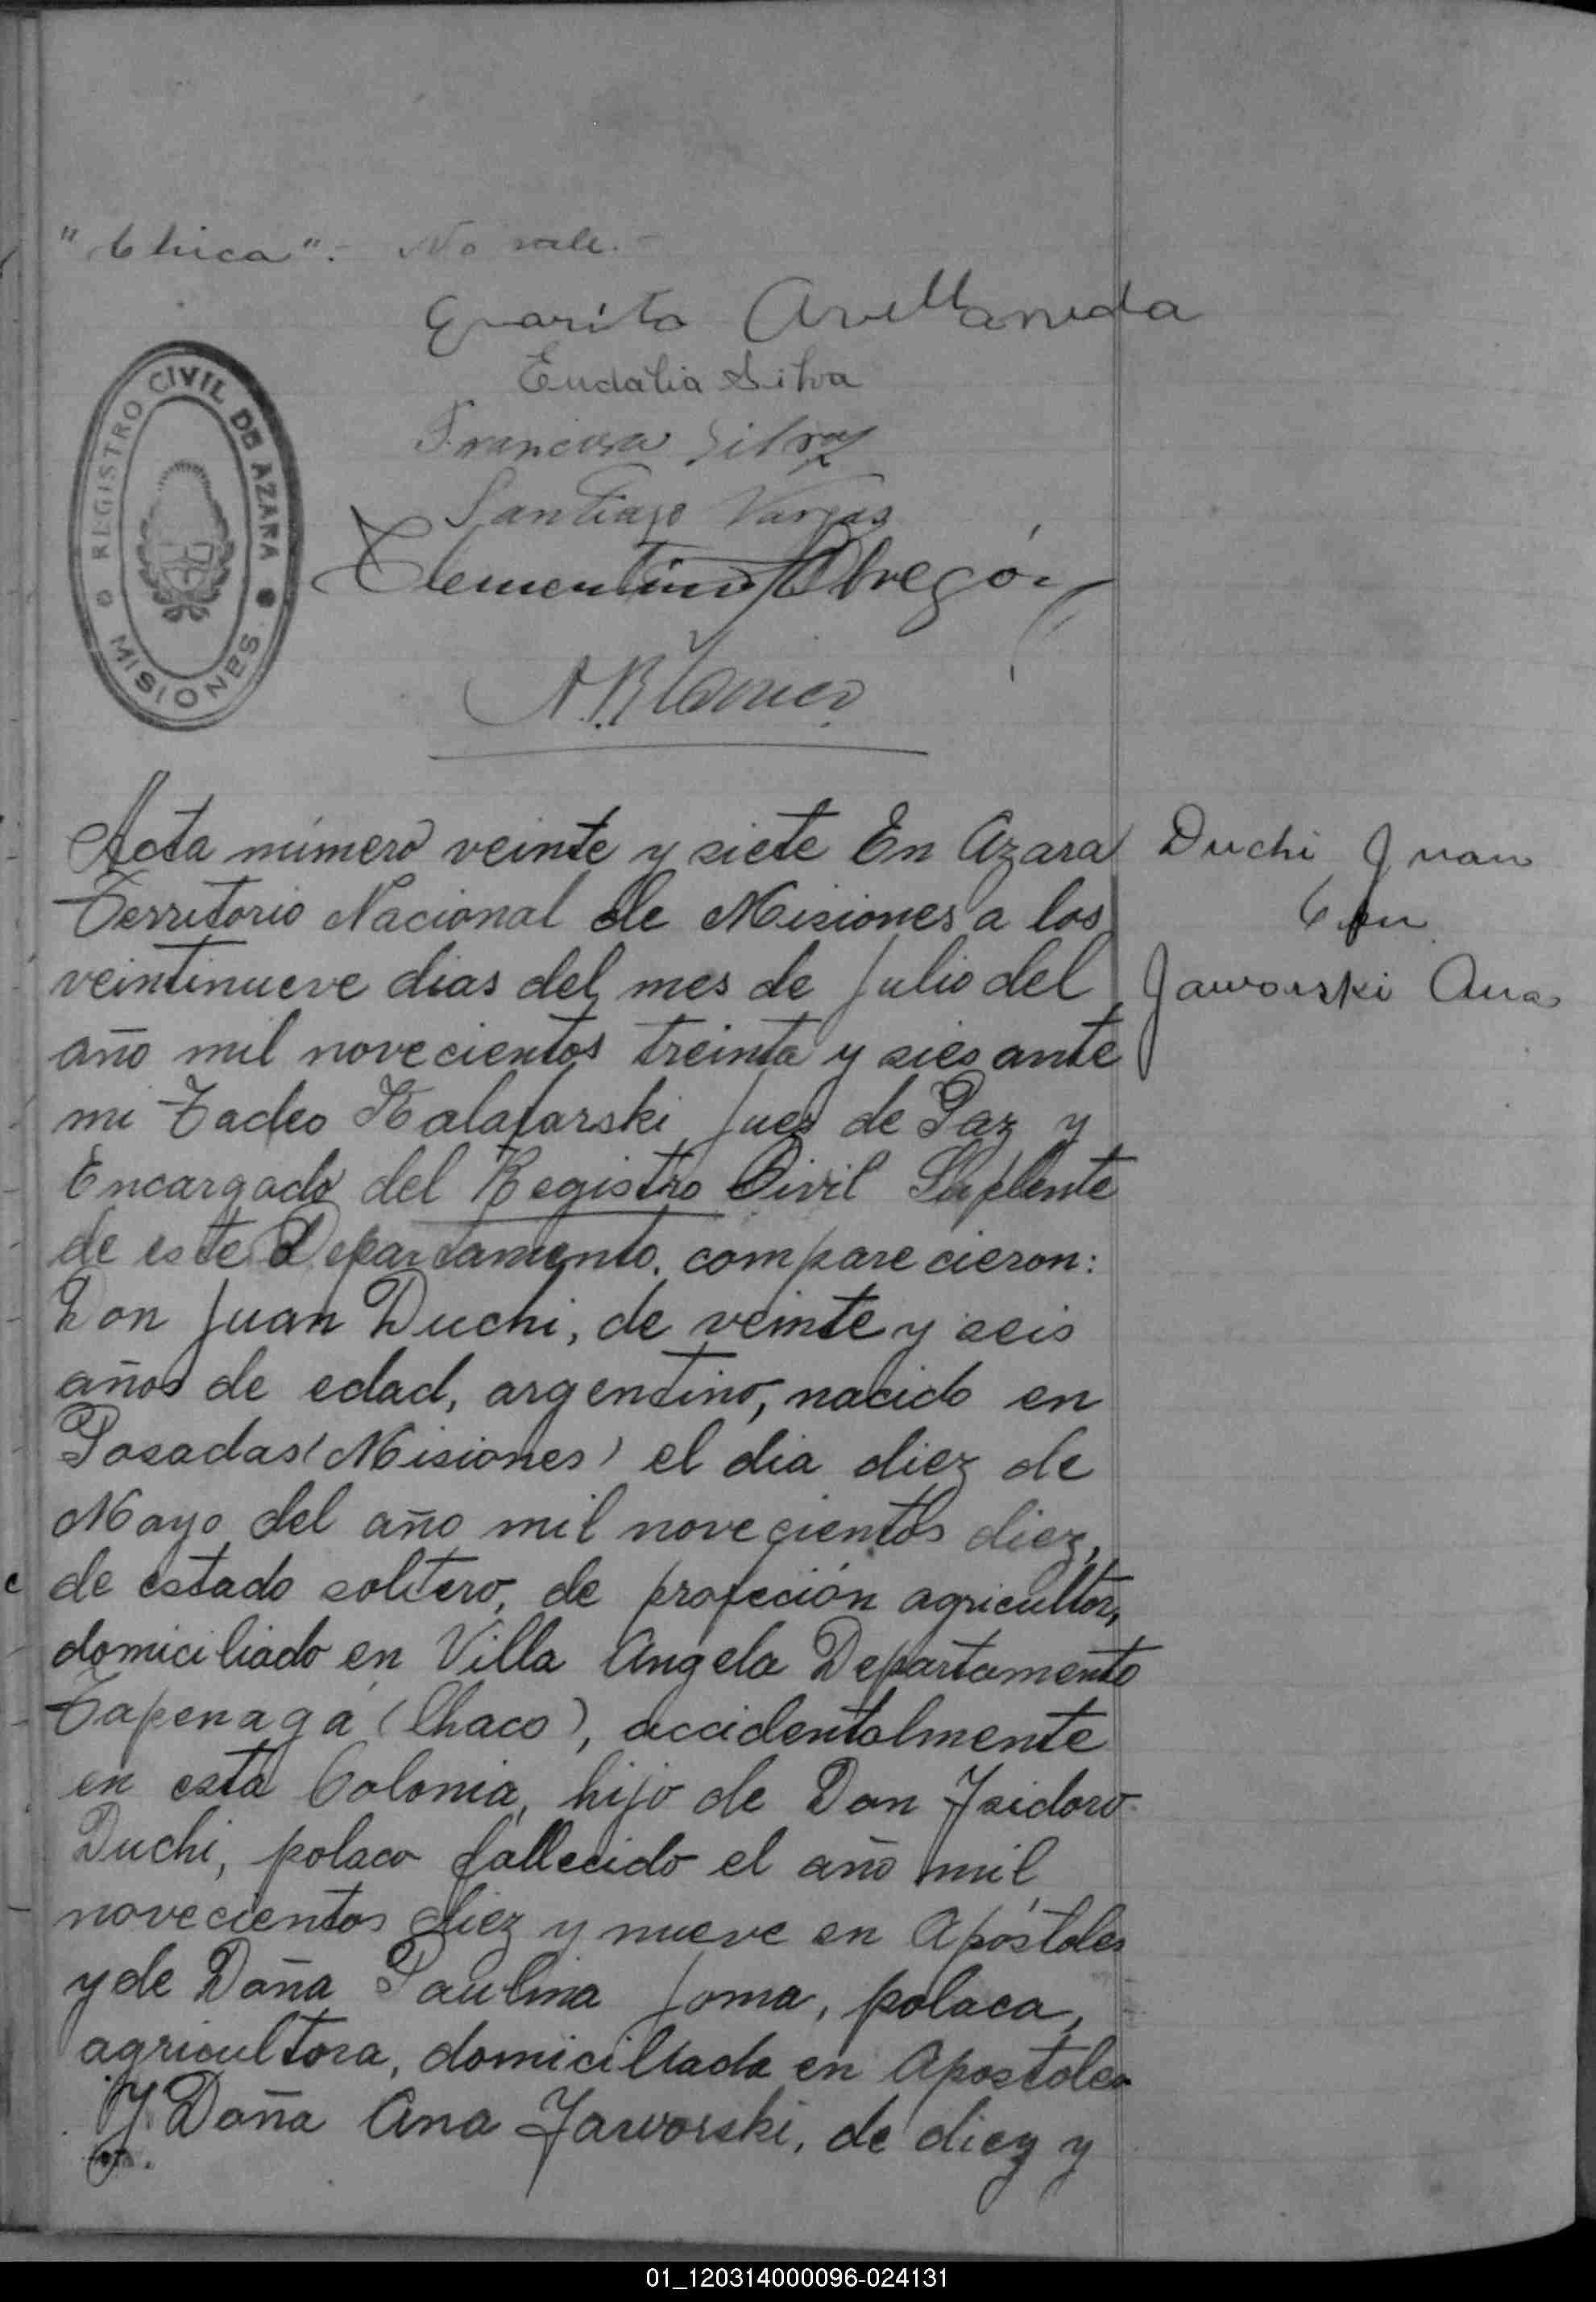 "Chica".- No vale.-
Avellaneda
Eudalia Silva
Francisca Silva
Santiago Vargas
Clementino Obregón
REGISTRO CIVIL DE AZARA
MISIONES
Acta número veinte y siete En Azara
Territorio Nacional de Misiones a los
veintinueve dias del mes de Julio del
año mil novecientos treinta y sies ante
mi Tadeo Kalafarski Juez de Paz y
Encargado del Registro Civil Suplente
de este Departamento, comparecieron:
Don Juan Duchi, de veinte y seis
años de edad, argentino, nacido en
Posadas (Misiones) el dia diez de
Mayo del año mil novecientos diez,
de estado soltero, de profeción agricultor,
domiciliado en Villa Angela Departamento
Tapenagá (Chaco), accidentalmente
en esta Colonia, hijo de Don Isidoro
Duchi, polaco fallecido el año mil
novecientos diez y nueve en Apóstoles
y de Doña Paulina Joma, polaca,
agricultora, domiciliada en Apostoles
Y Doña Ana Jaworski, de diez y
Duchi Juan
Con
Jaworski Ana
01_120314000096-024131